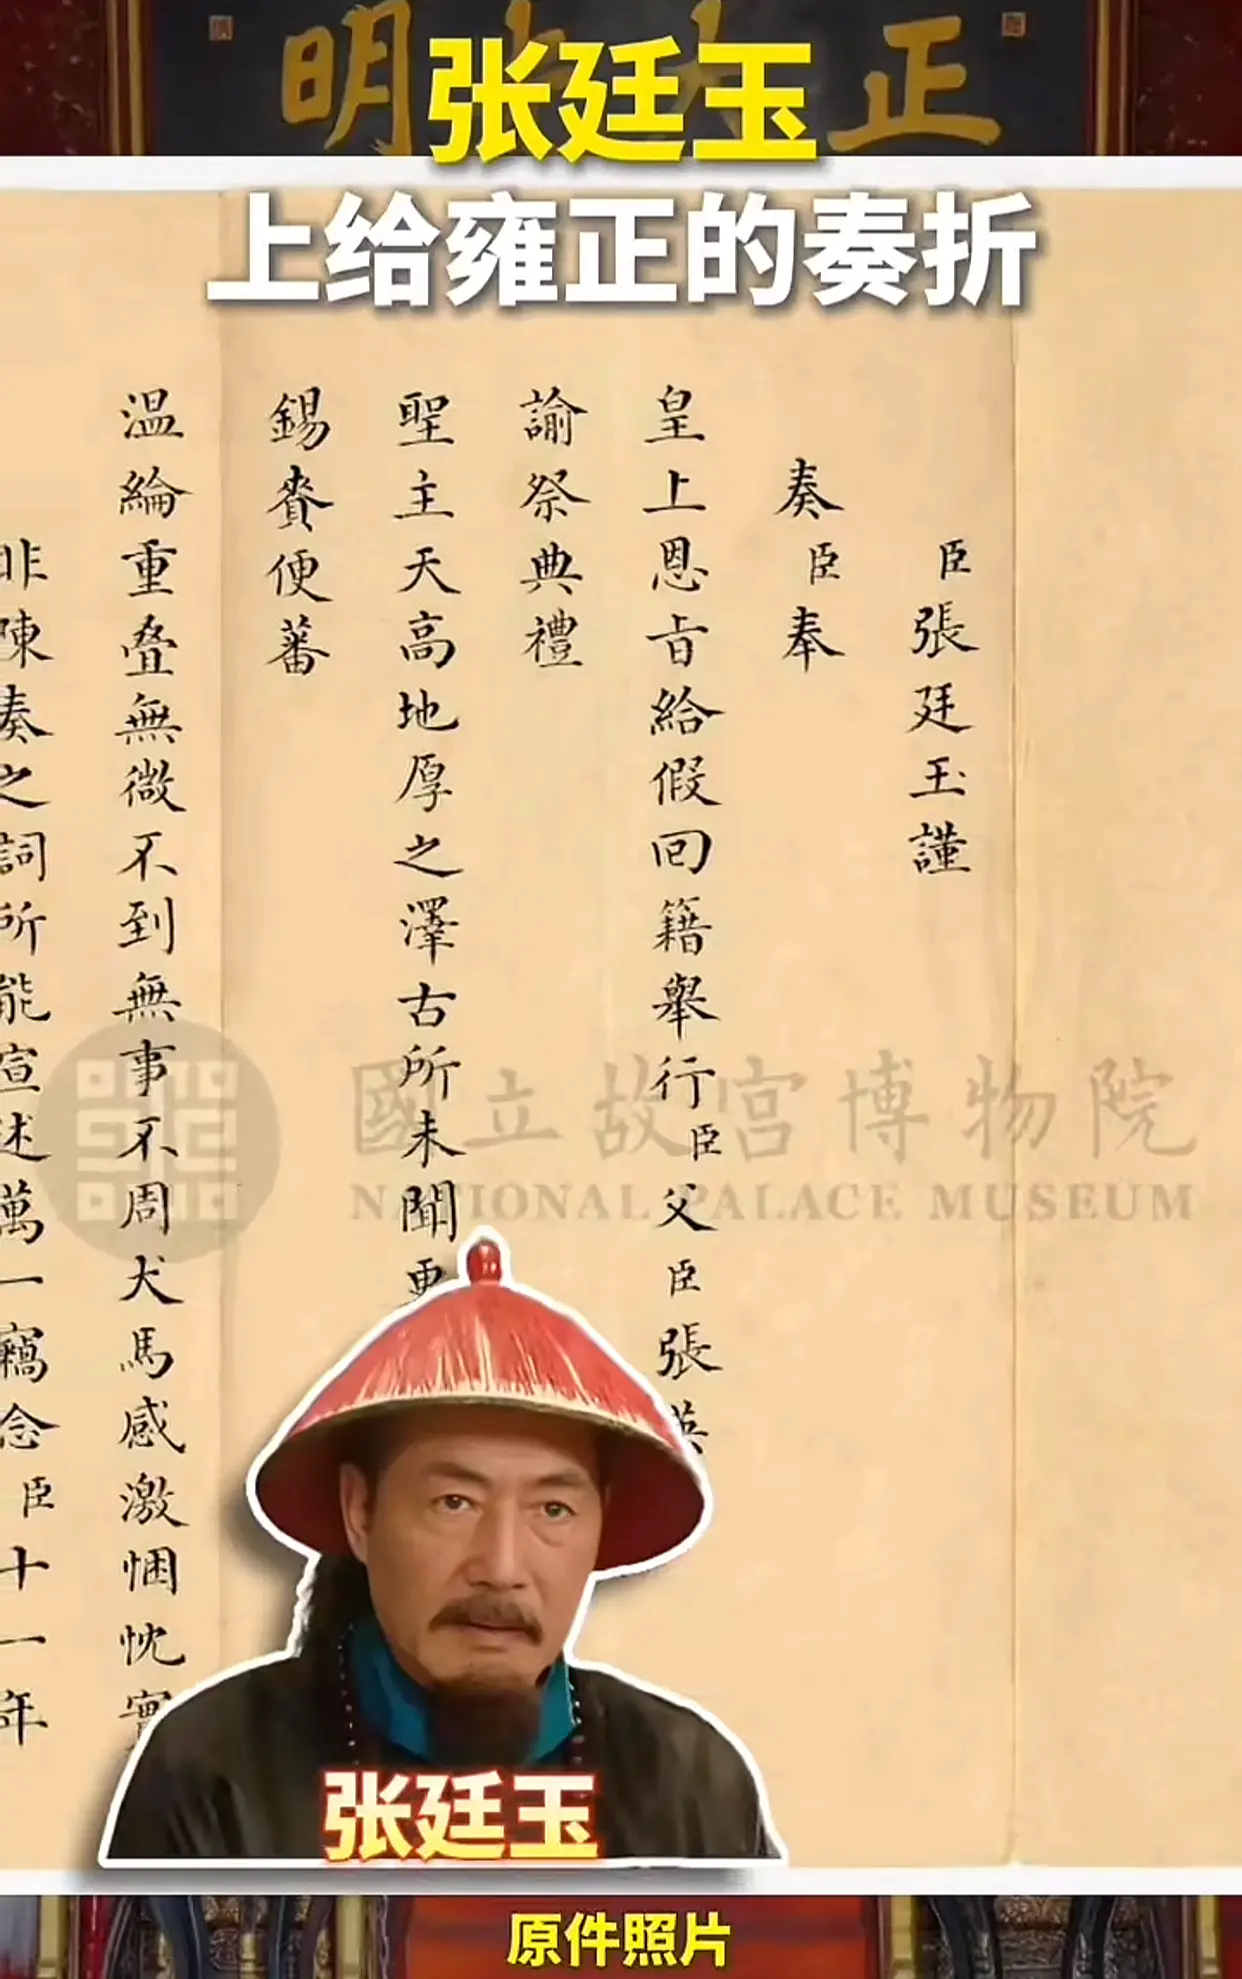 正大光明
张廷玉
上给雍正的奏折
臣張廷玉謹
奏臣奉
皇上恩旨給假回籍舉行臣父臣張英
諭祭典禮
聖主天高地厚之澤古所未聞更
錫賚便蕃
溫綸重疊無微不到無事不周犬馬感激悃忱實
非陳奏之詞所能宣述萬一竊念臣十一年
國立故宮博物院
NATIONAL PALACE MUSEUM
张廷玉
原件照片